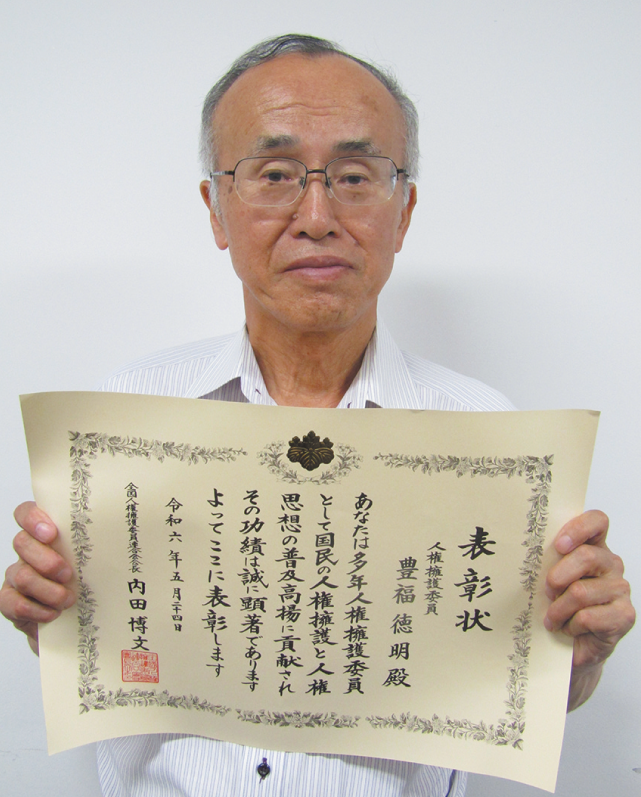 表彰状
人権擁護委員
豊福徳明殿
あなたは多年人権擁護委員
として国民の人権擁護と人権
思想の普及高揚に貢献され
その功績は誠に顕著であります
よってここに表彰します
令和六年五月二十四日
全国人権擁護委員連合会会長 内田博文